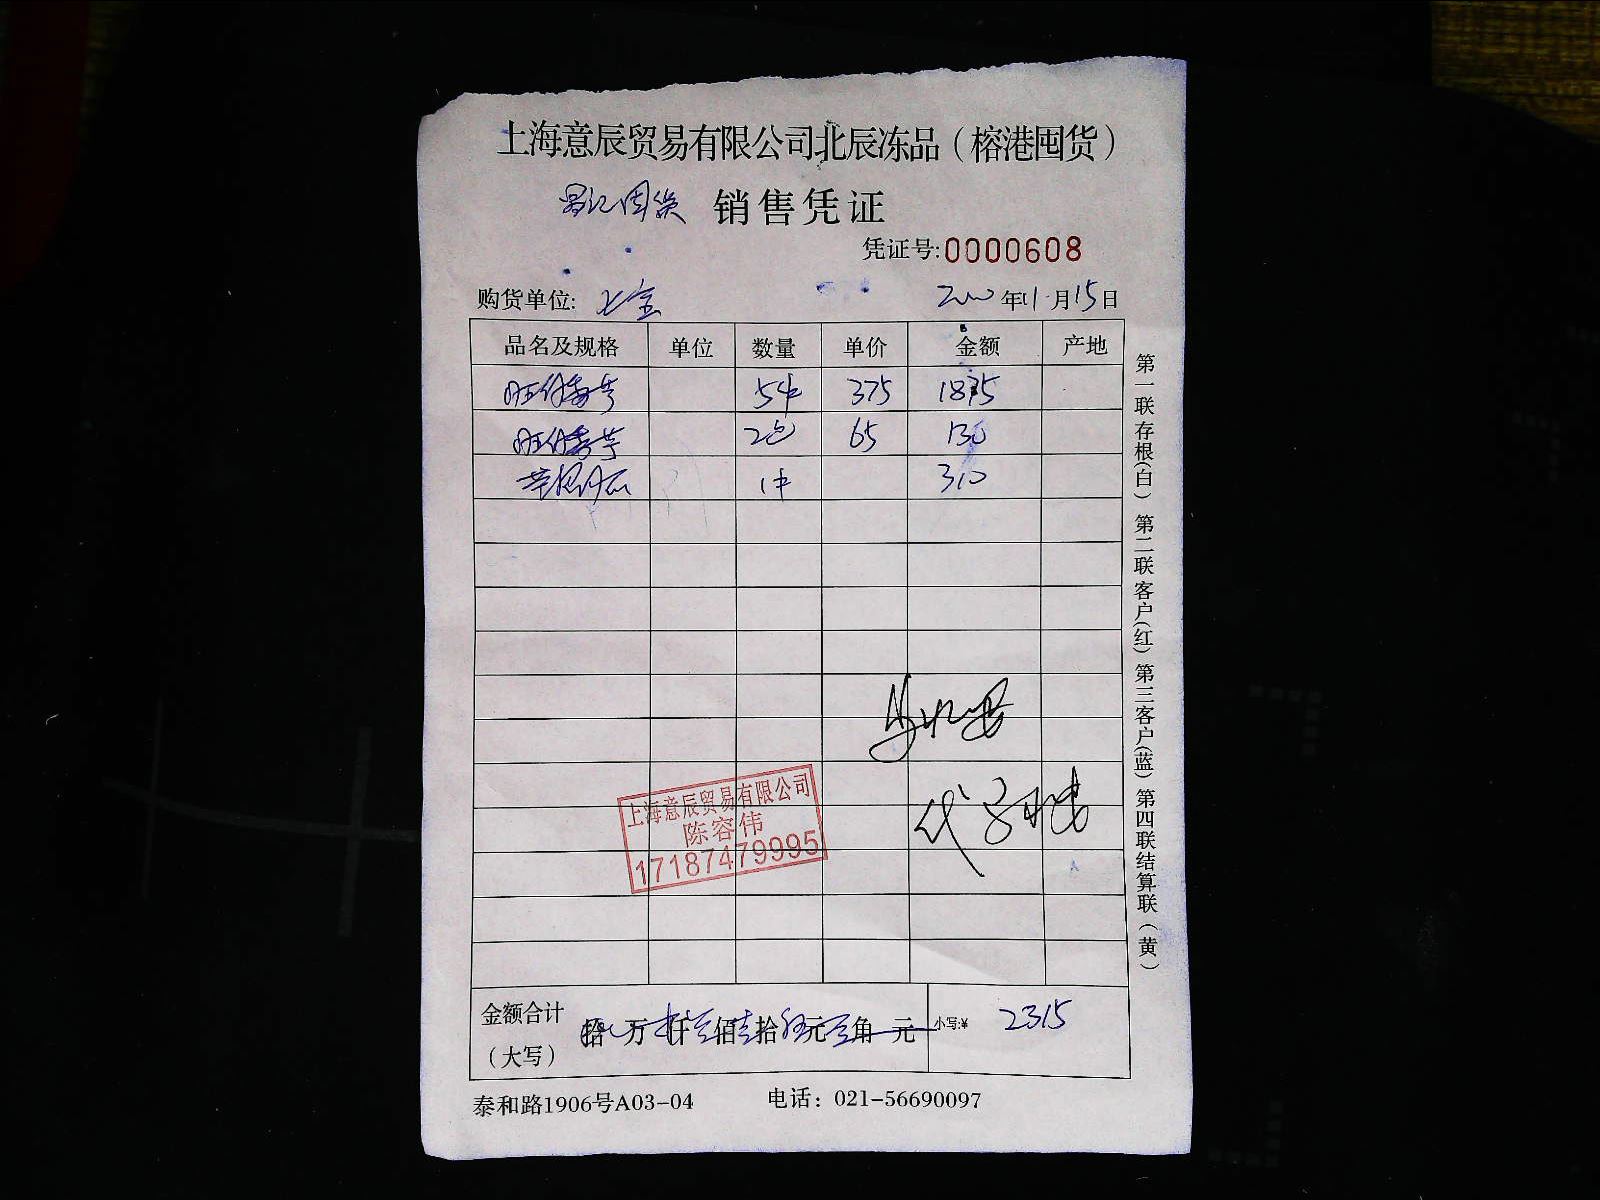 上海意辰贸易有限公司北辰冻品（榕港囤货）
销售凭证
凭证号:0000608
购货单位: 七宝 年11月15日
品名及规格 单位 数量 单价 金额 产地
5件 375 1875
2包 65 130
1件 310
上海意辰贸易有限公司
陈容伟
17187479995
金额合计
（大写）
拾 万 仟 佰 拾 元 角 元 小写:¥ 2315
泰和路1906号A03-04 电话：021-56690097
第一联存根(白) 第二联客户(红) 第三客户(蓝) 第四联结算联（黄）